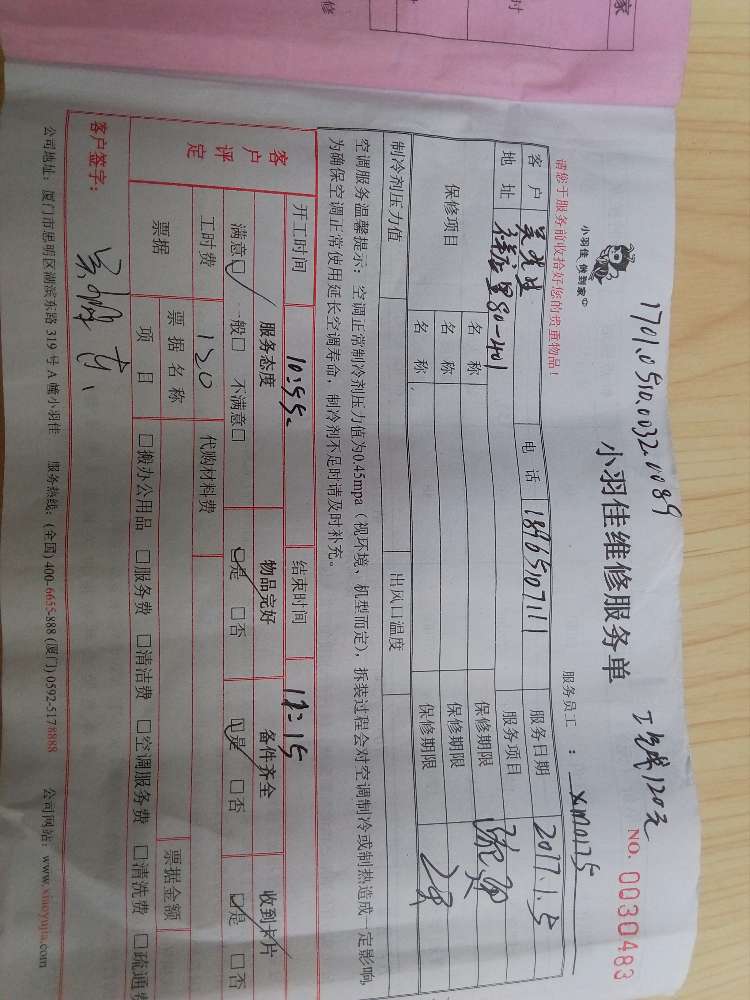 家
时
修
1701.0510.0032.0089
工时费120元
小羽佳 做到家
小羽佳维修服务单
NO. 0030483
请您于服务前收拾好您的贵重物品！
服务员工：XM0175
客 户 吴先生 电 话 18965107111 服务日期 2017.1.5
地 址 80-401 服务项目
保修项目 名 称 保修期限
名 称 保修期限
名 称 保修期限
制冷剂压力值 出风口温度
空调服务温馨提示：空调正常制冷剂压力值为0.45mpa（视环境、机型而定），拆装过程会对空调制冷或制热造成一定影响，
为确保空调正常使用延长空调寿命，制冷剂不足时请及时补充。
开工时间 10:55 结束时间 12:15
客户评定 服务态度 物品完好 备件齐全 收到卡片
满意☑ 一般□ 不满意□ ☑是 □否 ☑是 □否 ☑是 □否
工时费 120 代购材料费
票据 票 据 名 称 票据金额
项 目 □搬办公用品 □服务费 □清洁费 □空调服务费 □清洗费 □疏通费
客户签字：
公司地址：厦门市思明区湖滨东路 319 号 A 幢小羽佳 服务热线：(全国) 400-6655-888 (厦门) 0592-5178888 公司网站：www.xiaoyujia.com